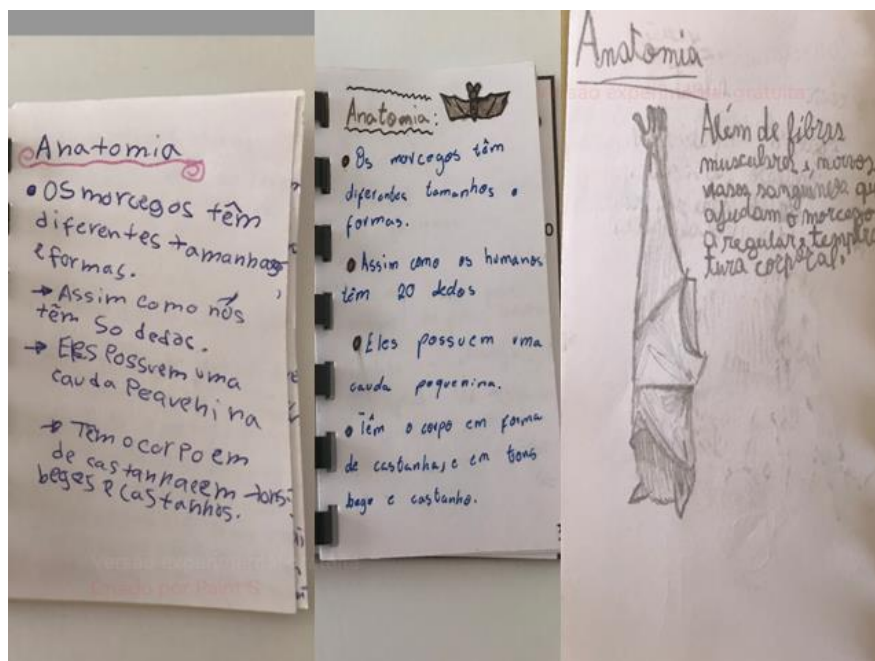 Anatomia
• Os morcegos têm
diferentes tamanhos
e formas.
→ Assim como nós
têm 50 dedos.
→ Eles Possuem uma
cauda Pequenina
→ Têm o corpo em
de castanha e em tons
beges e castanhos.
Versão experimental gratuita
Criado por Paint S
Anatomia:
• Os morcegos têm
diferentes tamanhos e
formas.
• Assim como os humanos
têm 20 dedos
• Eles possuem uma
cauda pequenina.
• Têm o corpo em forma
de castanha, e em tons
bege e castanho.
Anatomia
Versão experimental gratuita
Além de fibras
musculares, novos
vasos sanguíneos que
ajudam o morcego
a regular a tempera
tura corporal.